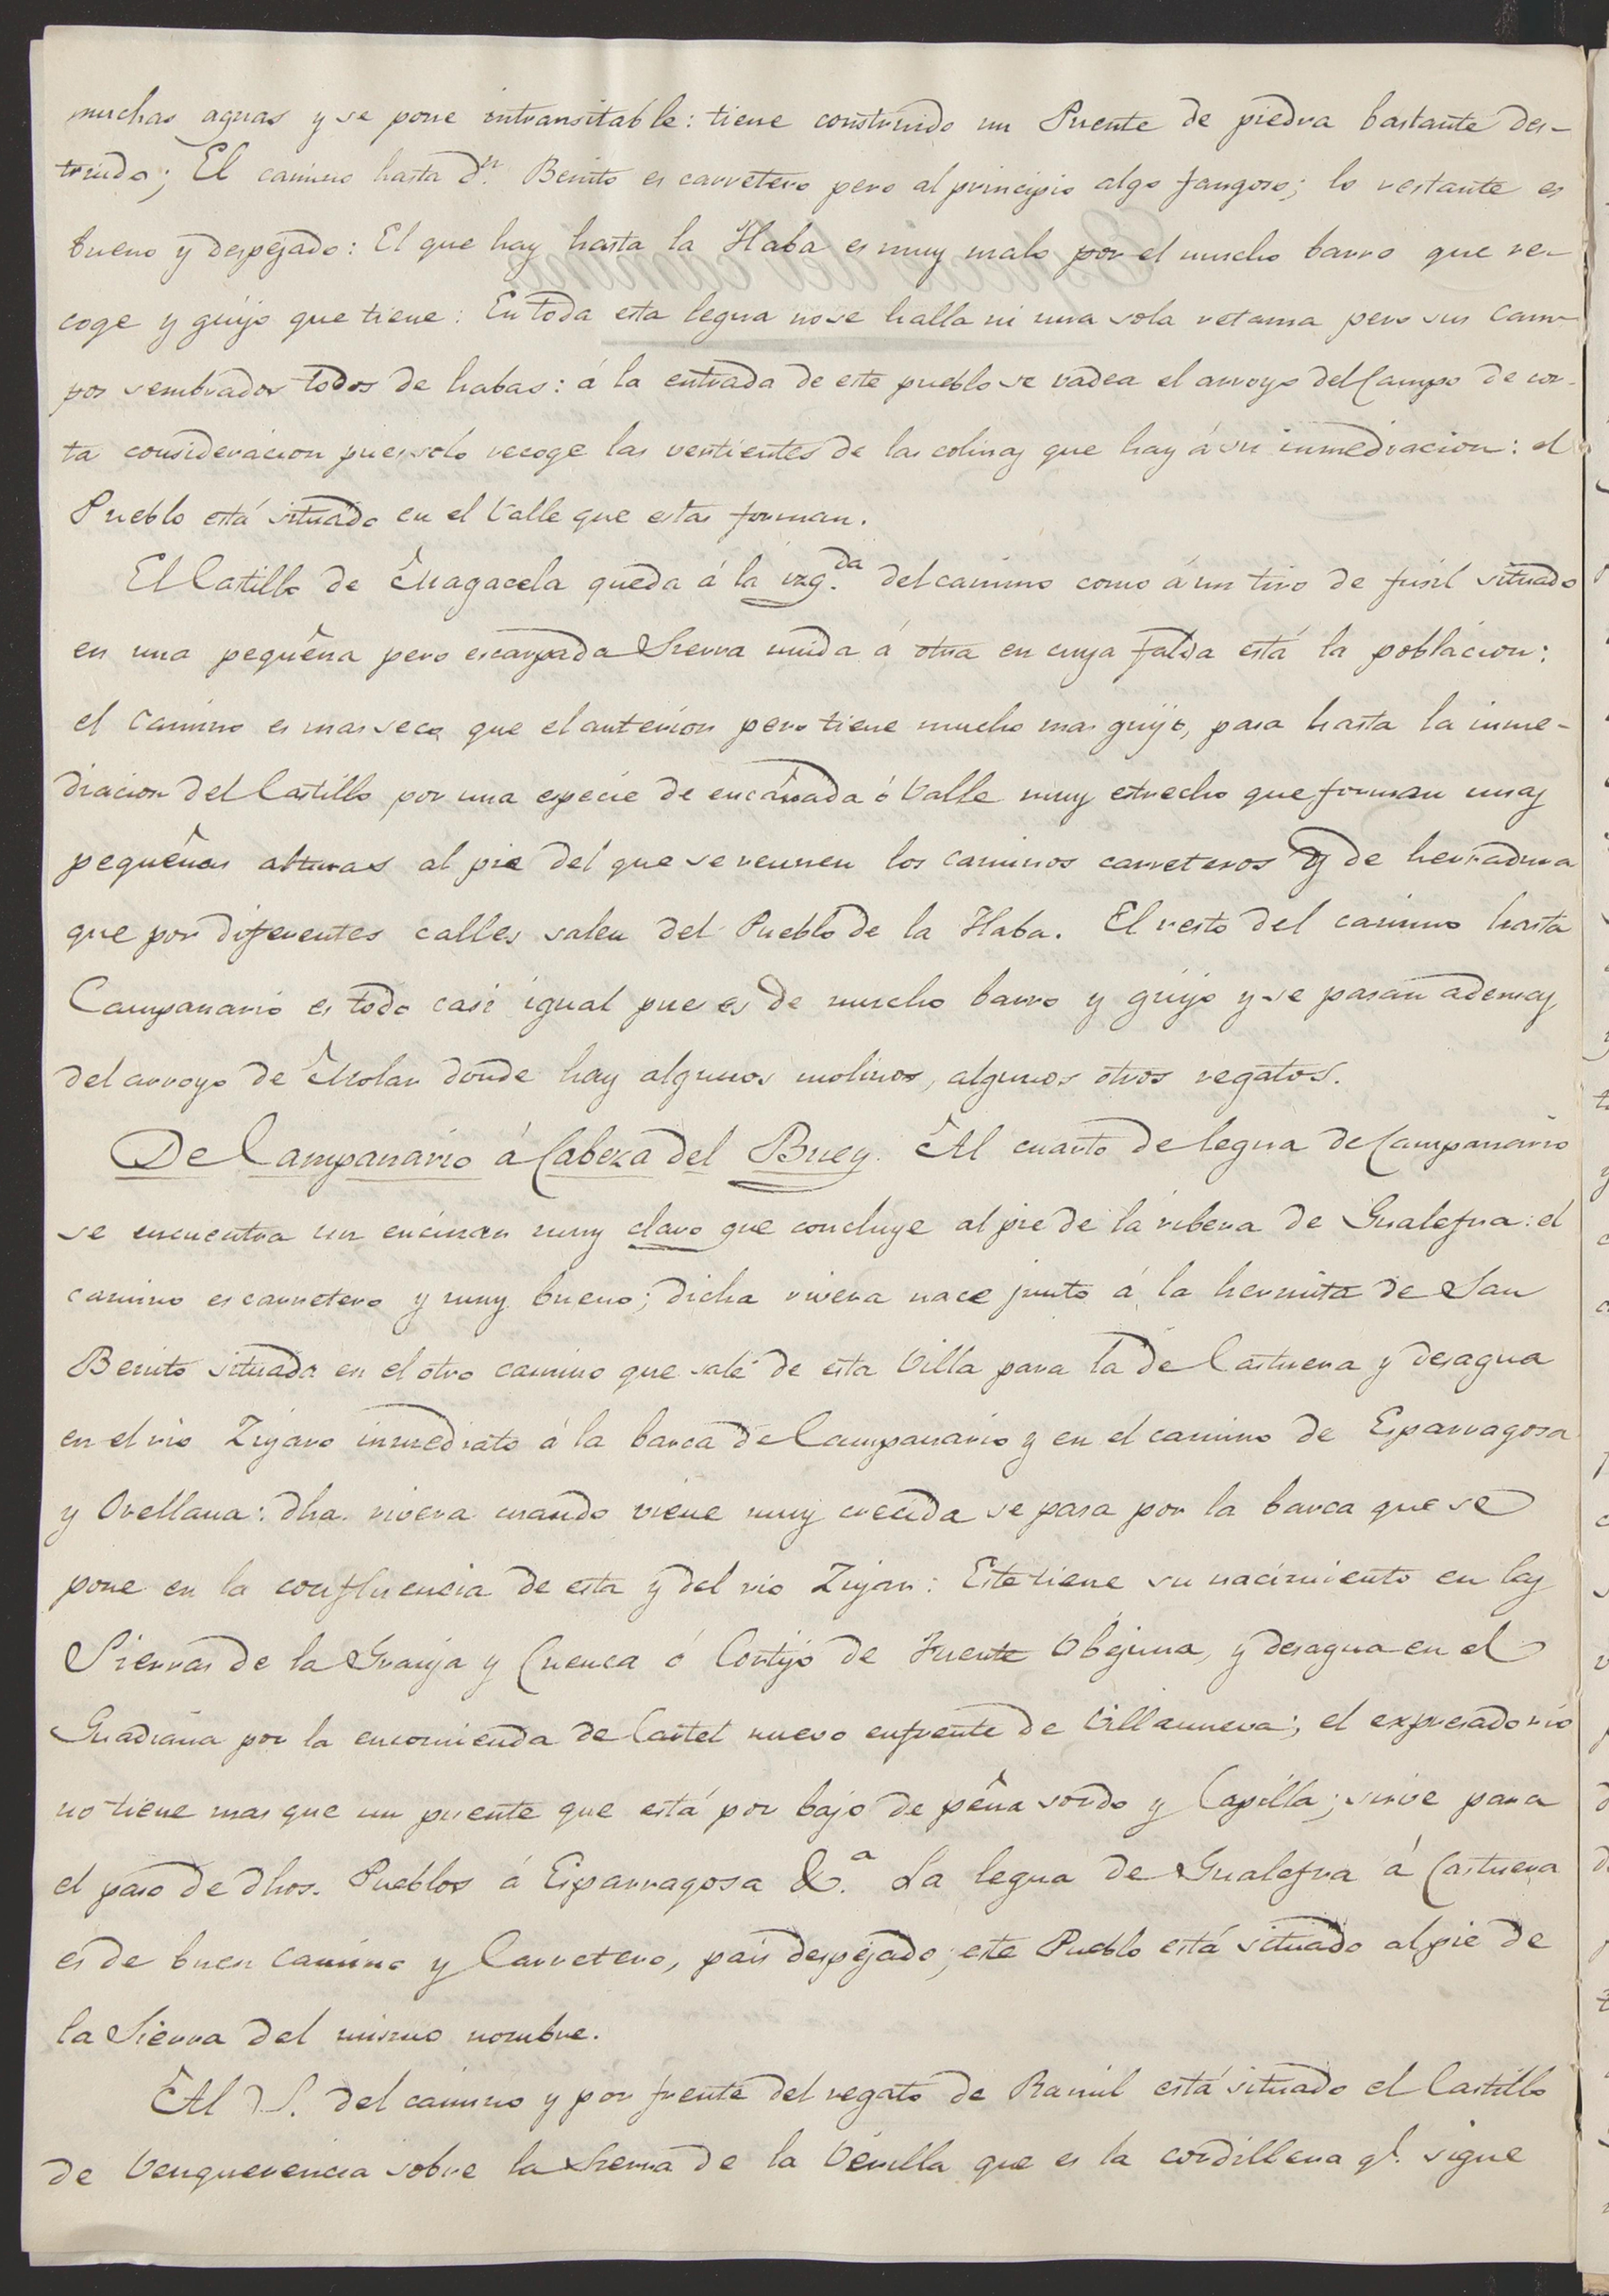 muchas aguas y se pone intransitable: tiene construido un Puente de piedra bastante des-
truido; El camino hasta Dn. Benito es carretero pero al principio algo fangoso; lo restante es
bueno y despejado: El que hay hasta la Haba es muy malo por el mucho barro que re-
coge y guijo que tiene: En toda esta legua no se halla ni una sola retama pero sus cam-
pos sembrados todos de habas: á la entrada de este pueblo se vadea el arroyo del Campo de cor-
ta consideracion pues solo recoge las vertientes de las colinas que hay á su inmediacion: el
Pueblo está situado en el Valle que estas forman.
El Castillo de Magacela queda á la izq.da del camino como á un tiro de fusil situado
en una pequeña pero escarpada Sierra unida á otra en cuya falda está la poblacion:
el camino es mas seco que el anterior pero tiene mucho mas guijo, pasa hasta la inme-
diacion del Castillo por una especie de encañada ó Valle muy estrecho que forman unas
pequeñas alturas al pie del que se reunen los caminos carreteros y de herradura
que por diferentes calles salen del Pueblo de la Haba. El resto del camino hasta
Campanario es todo casi igual pues es de mucho barro y guijo y se pasan ademas
del arroyo de Molar donde hay algunos molinos, algunos otros regatos.
De Campanario á Cabeza del Buey. Al cuarto de legua de Campanario
se encuentra un encinar muy claro que concluye al pie de la ribera de Gualefra: el
camino es carretero y muy bueno; dicha rivera nace junto á la hermita de San
Benito situada en el otro camino que sale de esta Villa para la de Castuera y desagua
en el rio Zujaro inmediato á la barca de Campanario y en el camino de Esparragosa
y Orellana: dha. rivera cuando viene muy crecida se pasa por la barca que se
pone en la confluencia de esta y del rio Zujar: Este tiene su nacimiento en las
Sierras de la Granja y Cuenca ó Cortijo de Fuente Obejuna, y desagua en el
Guadiana por la encomienda de Castel nuevo enfrente de Villanueva; el expresado rio
no tiene mas que un puente que está por bajo de peña sordo y Capilla; sirve para
el paso de dhos. Pueblos á Esparragosa &.a La legua de Gualefra á Castuera
es de buen camino y Carretero, pais despejado; este Pueblo está situado al pie de
la Sierra del mismo nombre.
Al S. del camino y por frente del regato de Ramil está situado el Castillo
de Venquerencia sobre la Sierra de la Verilla que es la cordillera qe. sigue